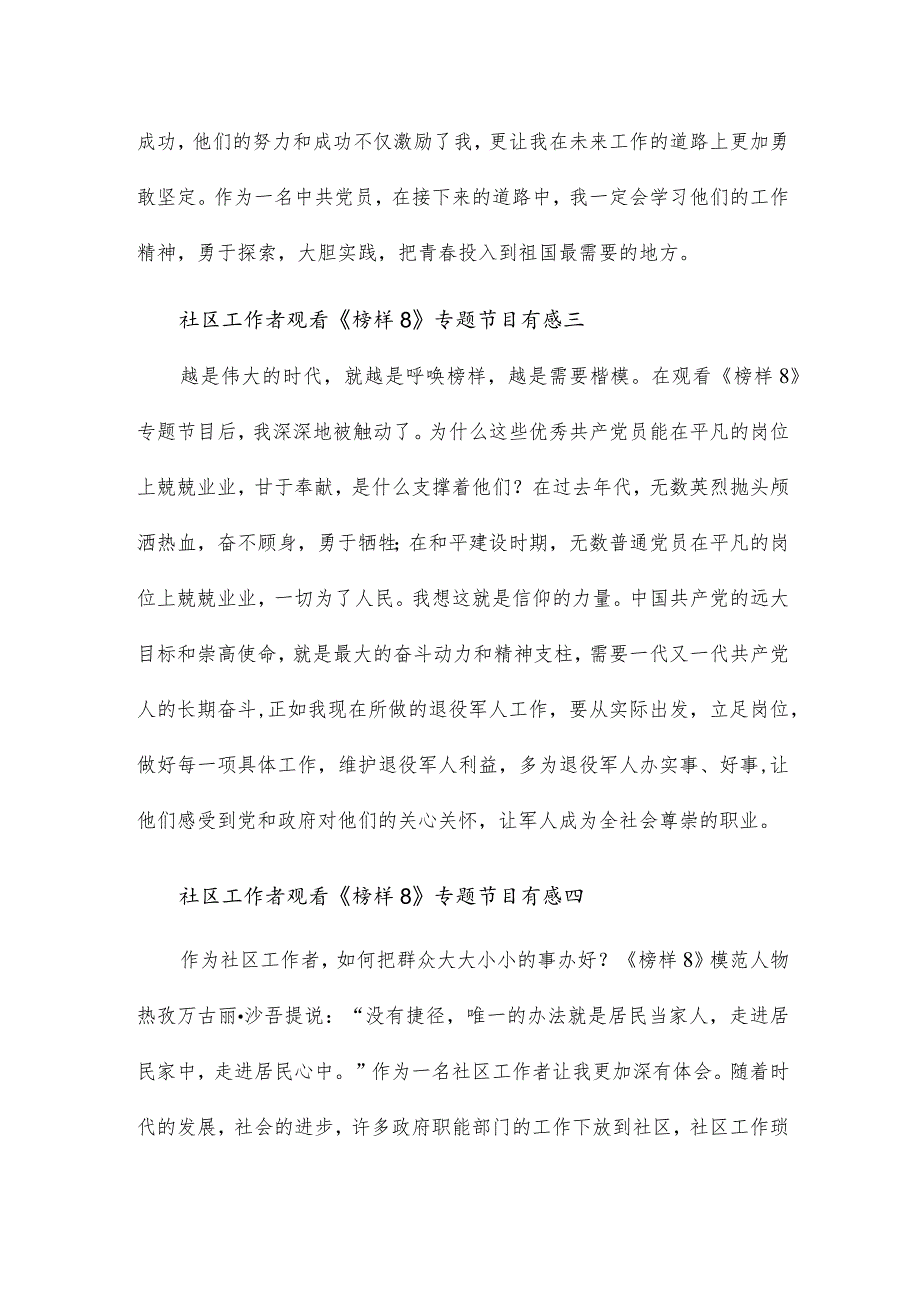 成功，他们的努力和成功不仅激励了我，更让我在未来工作的道路上更加勇
敢坚定。作为一名中共党员，在接下来的道路中，我一定会学习他们的工作
精神，勇于探索，大胆实践，把青春投入到祖国最需要的地方。
社区工作者观看《榜样8》专题节目有感三
越是伟大的时代，就越是呼唤榜样，越是需要楷模。在观看《榜样8》
专题节目后，我深深地被触动了。为什么这些优秀共产党员能在平凡的岗位
上兢兢业业，甘于奉献，是什么支撑着他们？在过去年代，无数英烈抛头颅
洒热血，奋不顾身，勇于牺牲；在和平建设时期，无数普通党员在平凡的岗
位上兢兢业业，一切为了人民。我想这就是信仰的力量。中国共产党的远大
目标和崇高使命，就是最大的奋斗动力和精神支柱，需要一代又一代共产党
人的长期奋斗,正如我现在所做的退役军人工作，要从实际出发，立足岗位，
做好每一项具体工作，维护退役军人利益，多为退役军人办实事、好事,让
他们感受到党和政府对他们的关心关怀，让军人成为全社会尊崇的职业。
社区工作者观看《榜样8》专题节目有感四
作为社区工作者，如何把群众大大小小的事办好？《榜样8》模范人物
热孜万古丽•沙吾提说：“没有捷径，唯一的办法就是居民当家人，走进居
民家中，走进居民心中。”作为一名社区工作者让我更加深有体会。随着时
代的发展，社会的进步，许多政府职能部门的工作下放到社区，社区工作琐